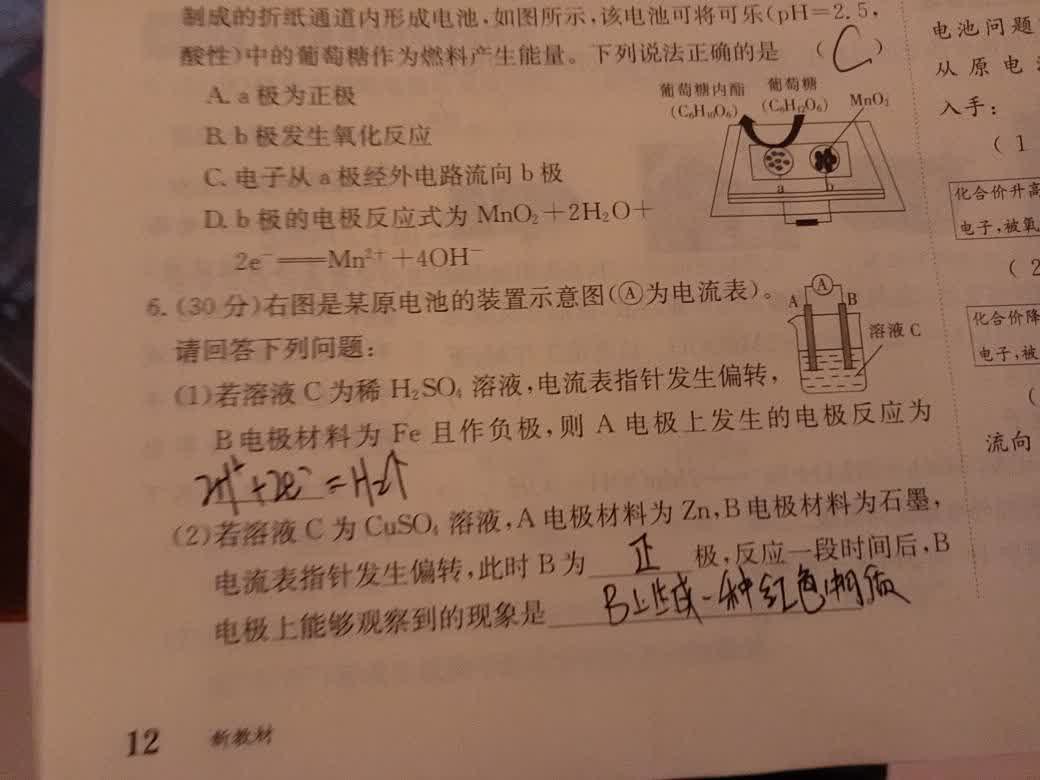 制成的折纸通道内形成电池,如图所示,该电池可将可乐(pH=2.5,
酸性)中的葡萄糖作为燃料产生能量。下列说法正确的是 (C)
A. a极为正极
B. b极发生氧化反应
C. 电子从a极经外电路流向b极
D. b极的电极反应式为MnO₂+2H₂O+
2e⁻══Mn²⁺+4OH⁻
葡萄糖内酯 葡萄糖
(C₆H₁₀O₆) (C₆H₁₂O₆) MnO₂
a b
6. (30分)右图是某原电池的装置示意图(Ⓐ为电流表)。
请回答下列问题:
A Ⓐ B
溶液C
(1)若溶液C为稀H₂SO₄溶液,电流表指针发生偏转,
B电极材料为Fe且作负极,则A电极上发生的电极反应为
2H⁺+2e⁻=H₂↑
(2)若溶液C为CuSO₄溶液,A电极材料为Zn,B电极材料为石墨,
电流表指针发生偏转,此时B为 正 极,反应一段时间后,B
电极上能够观察到的现象是 B上生成一种红色物质
12 新教材
电池问题
从原电
入手:
(1
化合价升高
电子,被氧
(2
化合价降
电子,被
(
流向